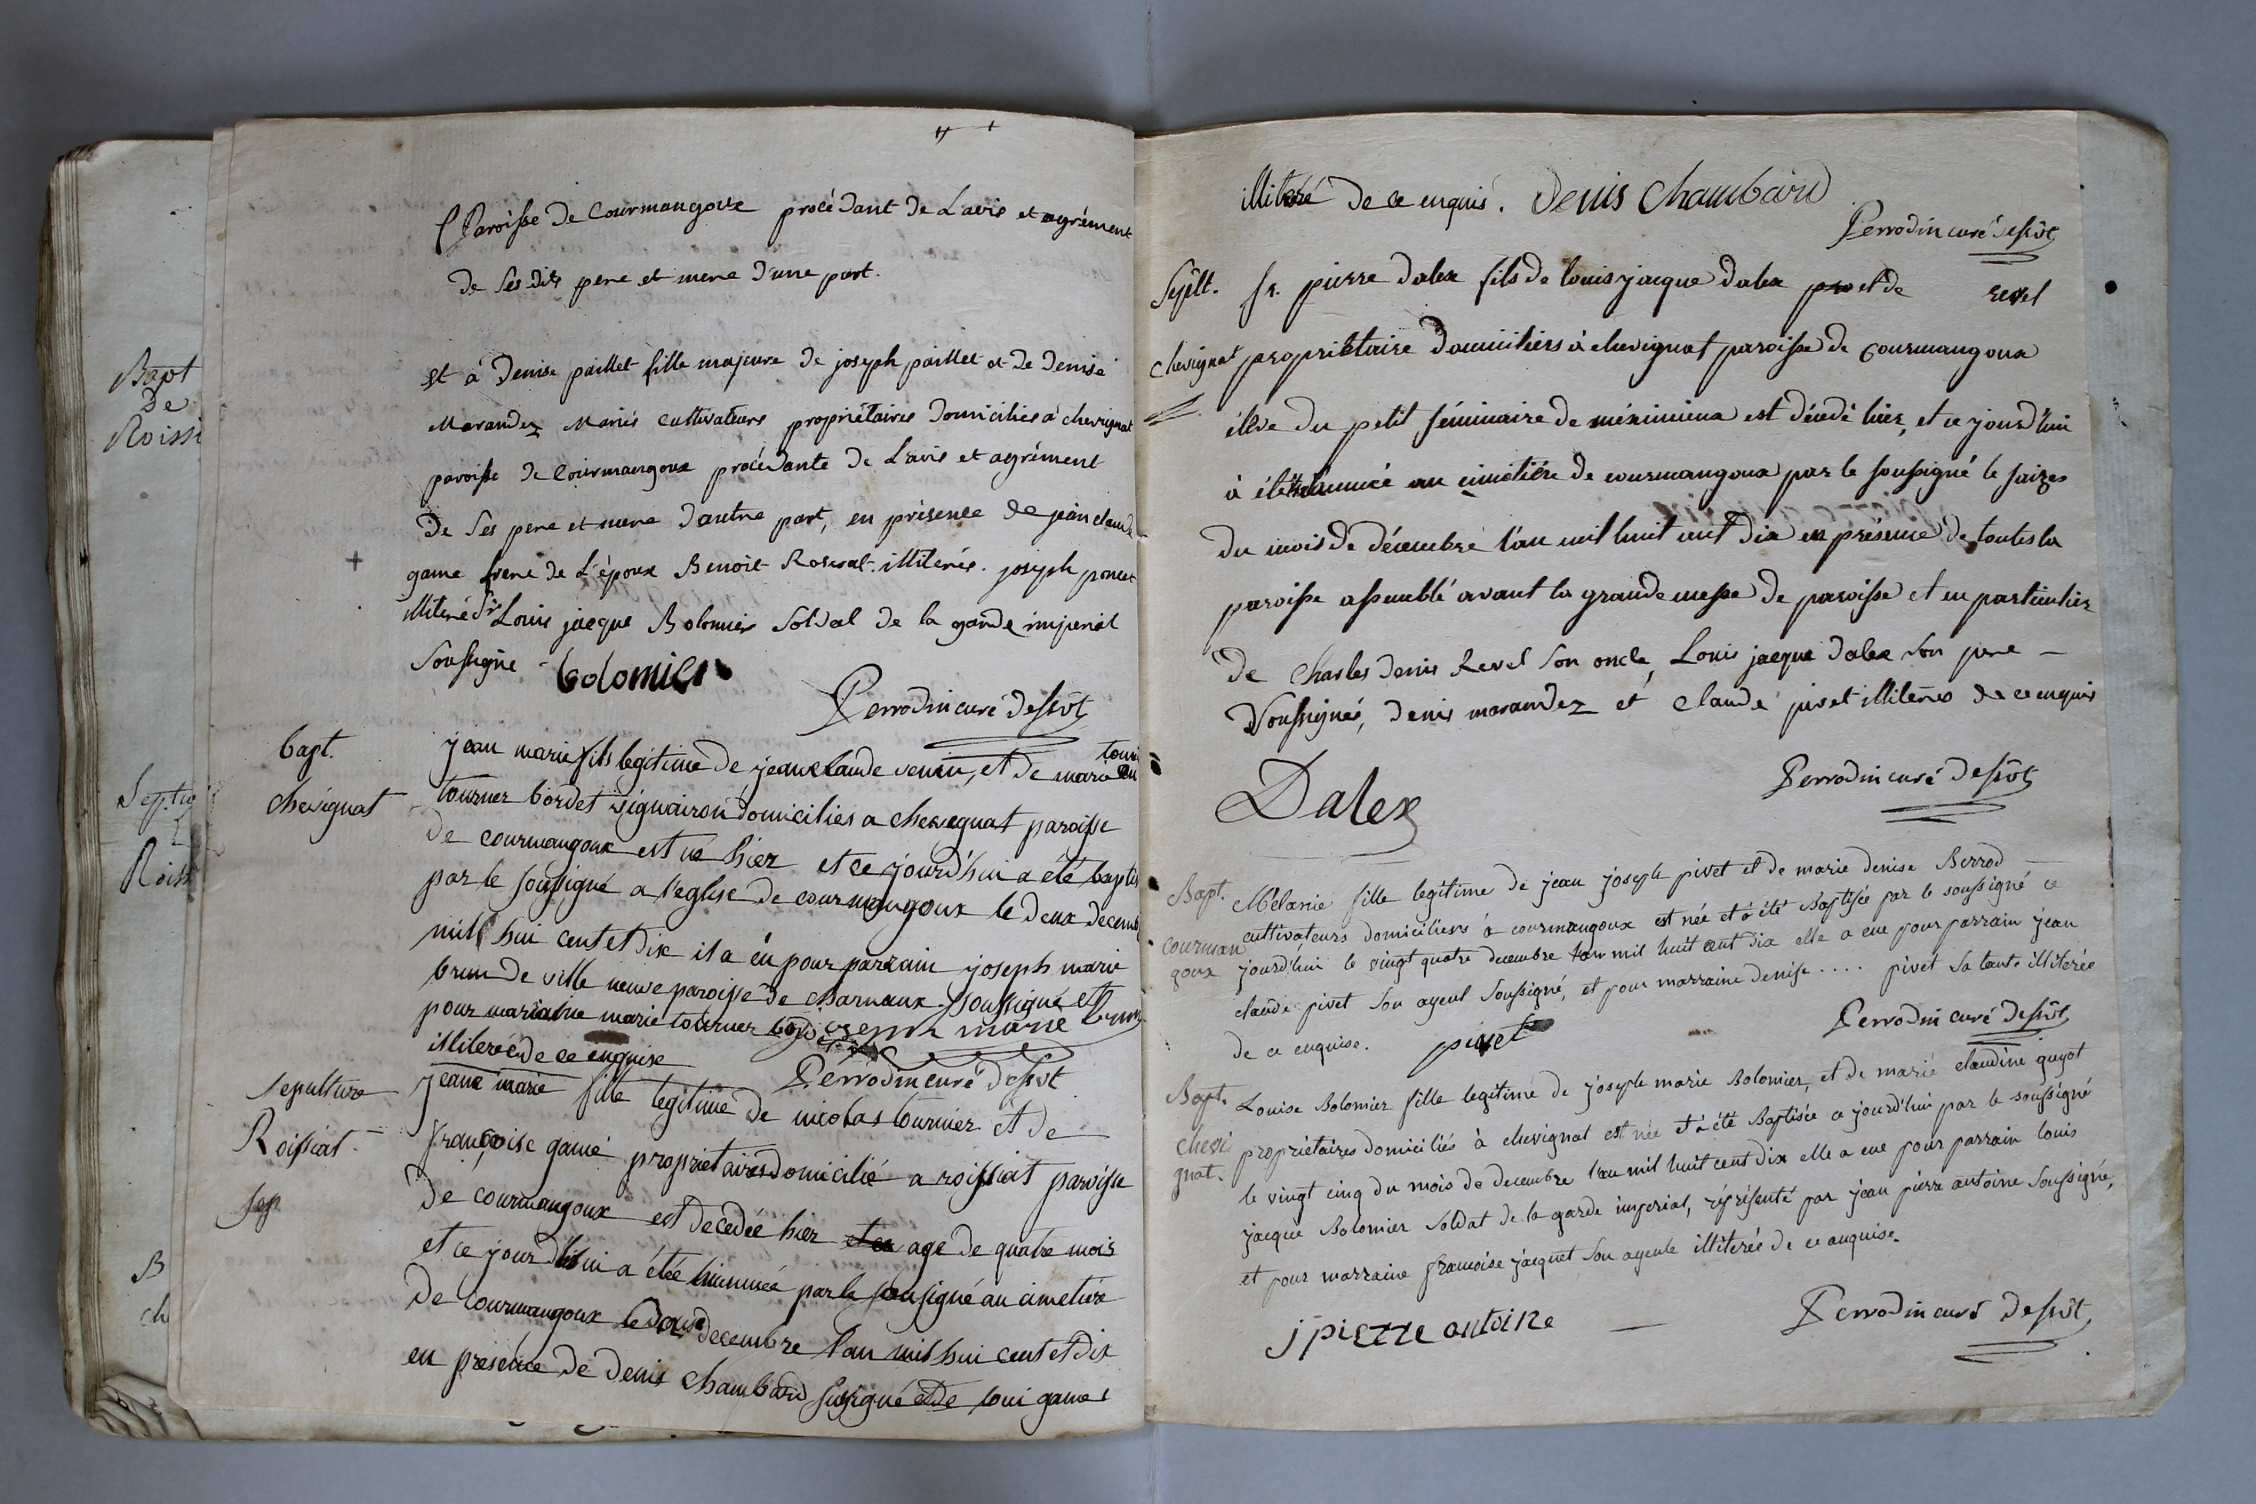 Paroisse de Courmangoux procédant de L'avis et agrément
de ses dits pere et mere d'une part.
et à Denise paillet fille majeure de joseph paillet et de Denise
Marandez Mariés cultivateurs propriétaires Domiciliés à chevignat
paroisse de Courmangoux procédante de L'avis et agrément
De Ses pere et mere d'autre part, en présence de jean claude
game frere de L'époux Benoit illiterés. joseph poncet
illiteré Sr Louis jacque Bolomier Soldat de la garde imperial
Soussigné bolomier
Perrodin curé dessvt
bapt.
chevignat
jean marie fils legitime de jean claude venin, et de marie
tourner bordet domiciliés a chevegnat paroisse
de courmangoux est né hier et ce jourd'hui a été baptis
par le soussigné a l'eglise de courmangoux le deux decemb
mil hui cent et dix il a éu pour parrain joseph marie
brun de ville neuve paroisse de charnaux soussigné et
pour maraine marie tourner joseph marie brun
illiterée de ce enquise
Perrodin curé dessvt
sepulture
Roissiat
Sep
jeane marie fille legitime de nicolas tournier et de
françoise game propriétaires domicilié a roissiat paroisse
de courmangoux est decedée hier age de quatre mois
et ce jourd'hui a étée hinumée par le sousigné au cimetiere
de courmangoux le douze decembre l'an mil hui cent et dix
en presence de denis chambard susigné et de loui game
Bapt
de
Roissi
Septu
Roiss
B
ch
illiteré de ce enquis. Denis Chambard
Perrodin curé dessvt
Sepult.
chevignat
sr. pierre dalex fils de louis jacque dalex et de revel
propriétaire domiciliers à chevignat paroisse de courmangoux
éleve du petit séminaire de méximieux est décédé hier, et ce jourd'hui
à été inhumée au cimetiére de courmangoux par le soussigné le saizes
du mois de décembre l'an mil huit cent dix en présence de toutes la
paroisse assemblé avant la grande messe de paroisse et en particulier
de Charles denis Revel son oncle, Louis jacque dalex son pere —
Soussignés, denis marandez et claude pivet illiterés de ce enquis
Perrodin curé dessvt
Dalex
Bapt.
courman
goux
Mélanie fille legitime de jean joseph pivet et de marie denise Berrod —
cultivateurs domiciliers à courmangoux est née et à été Baptisée par le soussigné ce
jourd'hui le vingt quatre decembre l'an mil huit cent dix elle a eue pour parrain jean
claude pivet son ayeul Soussigné, et pour marraine denise ..... pivet sa tante illiterée
de ce enquise. pivet
Perrodin curé dessvt
Bapt.
chevi
gnat.
Louise Bolomier fille legitime de joseph marie Bolomier, et de marie claudine guyot
propriétaires domiciliés à chevignat est née et à été Baptisée ce jourd'hui par le soussigné
le vingt cinq du mois de decembre l'an mil huit cent dix elle a eue pour parrain louis
jacque Bolomier soldat de la garde imperial, réprésenté par jean pierre antoine soussigné,
et pour marraine francoise jacquet son ayeule illiterée de ce enquise.
j pierre antoine —
Perrodin curé dessvt